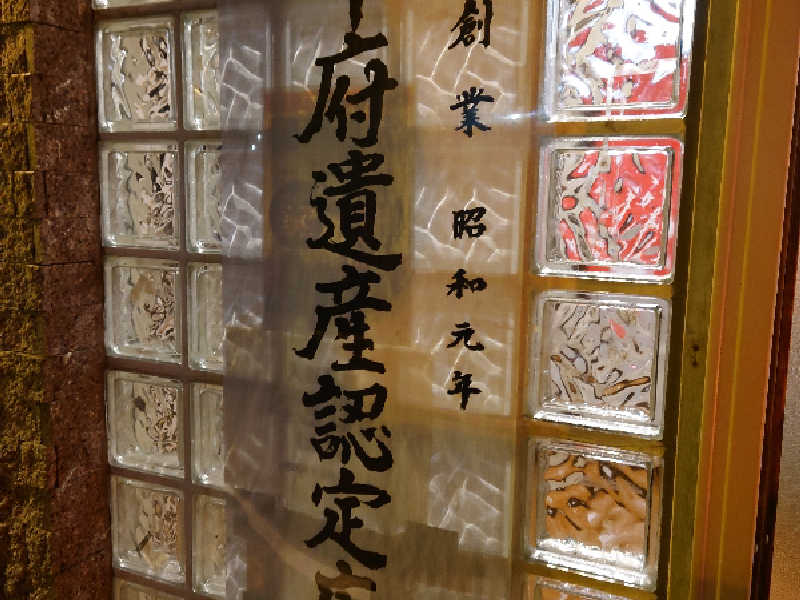 創業 昭和元年
府遺産認定